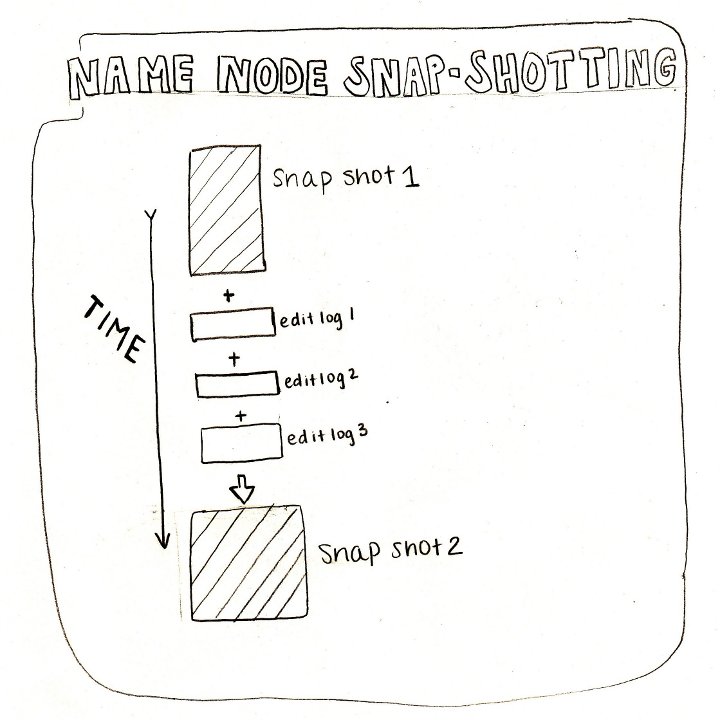 NAME NODE SNAP-SHOTTING
Snap shot 1
TIME
+
edit log 1
+
edit log 2
+
edit log 3
Snap shot 2